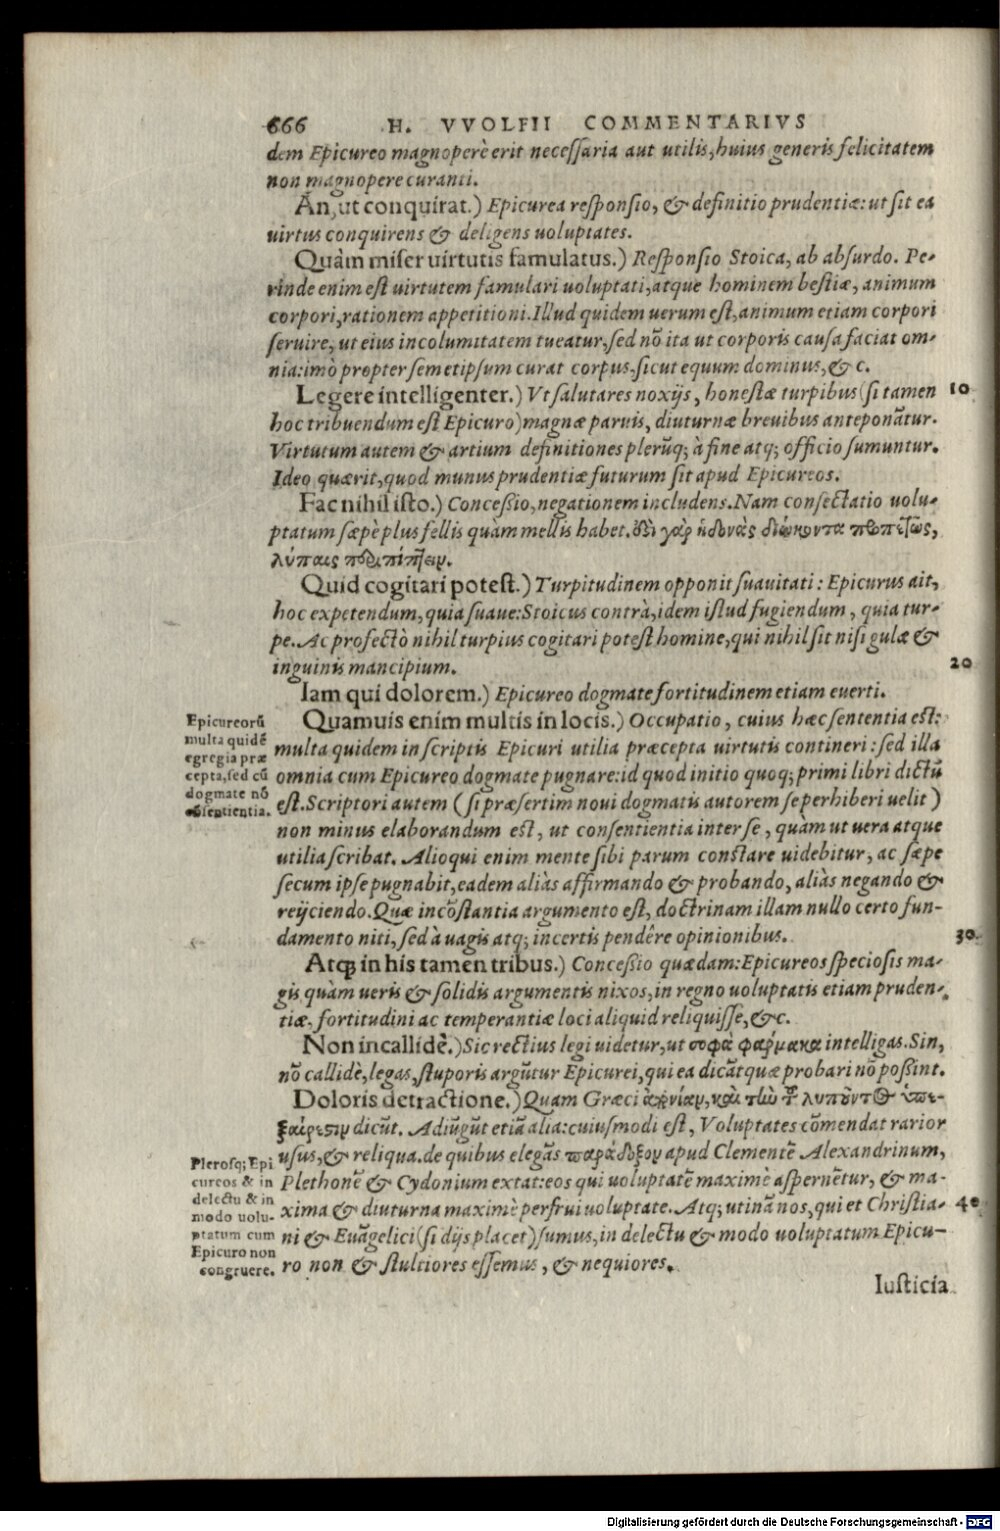 666 H. VVOLFII COMMENTARIVS
dem Epicureo magnoperè erit necessaria aut utilis, huius generis felicitatem
non magnopere curanti.
An, ut conquirat.) Epicurea responsio, & definitio prudentiæ: ut sit ea
uirtus conquirens & deligens uoluptates.
Quàm miser uirtutis famulatus.) Responsio Stoica, ab absurdo. Pe-
rinde enim est uirtutem famulari uoluptati, atque hominem bestiæ, animum
corpori, rationem appetitioni. Illud quidem uerum est, animum etiam corpori
seruire, ut eius incolumitatem tueatur, sed nō ita ut corporis causa faciat om-
nia: imò propter semetipsum curat corpus, sicut equum dominus, & c.
Legere intelligenter.) Vt salutares noxijs, honestæ turpibus (si tamen 10
hoc tribuendum est Epicuro) magnæ paruis, diuturnæ breuibus anteponātur.
Virtutum autem & artium definitiones plerūq; à fine atq; officio sumuntur.
Ideo quærit, quod munus prudentiæ futurum sit apud Epicureos.
Fac nihil isto.) Concessio, negationem includens. Nam consectatio uolu-
ptatum sæpè plus fellis quàm mellis habet. δεῖ γὰρ ἡδονὰς διώκοντα προπετῶς,
λύπαις περιπίπτειν.
Quid cogitari potest.) Turpitudinem opponit suauitati: Epicurus ait,
hoc expetendum, quia suaue: Stoicus contrà, idem istud fugiendum, quia tur-
pe. Ac profectò nihil turpius cogitari potest homine, qui nihil sit nisi gulæ &
inguinis mancipium. 20
Iam qui dolorem.) Epicureo dogmate fortitudinem etiam euerti.
Quamuis enim multis in locis.) Occupatio, cuius hæc sententia est:
multa quidem in scriptis Epicuri utilia præcepta uirtutis contineri: sed illa
omnia cum Epicureo dogmate pugnare: id quod initio quoq; primi libri dictū
est. Scriptori autem (si præsertim noui dogmatis autorem se perhiberi uelit)
non minus elaborandum est, ut consentientia inter se, quàm ut uera atque
utilia scribat. Alioqui enim mente sibi parum constare uidebitur, ac sæpe
secum ipse pugnabit, eadem aliàs affirmando & probando, aliàs negando &
reijciendo. Quæ incōstantia argumento est, doctrinam illam nullo certo fun-
damento niti, sed à uagis atq; incertis pendêre opinionibus. 30
Epicureorū
multa quidē
egregia præ
cepta, sed cū
dogmate nō
cōsentientia.
Atq; in his tamen tribus.) Concessio quædam: Epicureos speciosis ma-
gis quàm ueris & solidis argumentis nixos, in regno uoluptatis etiam pruden-
tiæ, fortitudini ac temperantiæ loci aliquid reliquisse, & c.
Non incallidè.) Sic rectius legi uidetur, ut σοφὰ φάρμακα intelligas. Sin,
nō callidè, legas, stuporis argūtur Epicurei, qui ea dicāt quæ probari nō possint.
Doloris detractione.) Quam Græci ἀπονίαν, καὶ τὴν τοῦ λυποῦντος ὑπε-
ξαίρεσιν dicūt. Adiūgūt etiā alia: cuiusmodi est, Voluptates cōmendat rarior
usus, & reliqua. de quibus elegās παράδοξον apud Clementē Alexandrinum,
Plethonē & Cydonium extat: eos qui uoluptatē maximè aspernētur, & ma-
xima & diuturna maximè perfrui uoluptate. Atq; utinā nos, qui et Christia- 40
ni & Euāgelici (si dijs placet) sumus, in delectu & modo uoluptatum Epicu-
ro non & stultiores essemus, & nequiores.
Plerosq; Epi
cureos & in
delectu & in
modo uolu-
ptatum cum
Epicuro non
congruere.
Iusticia
Digitalisierung gefördert durch die Deutsche Forschungsgemeinschaft - DFG